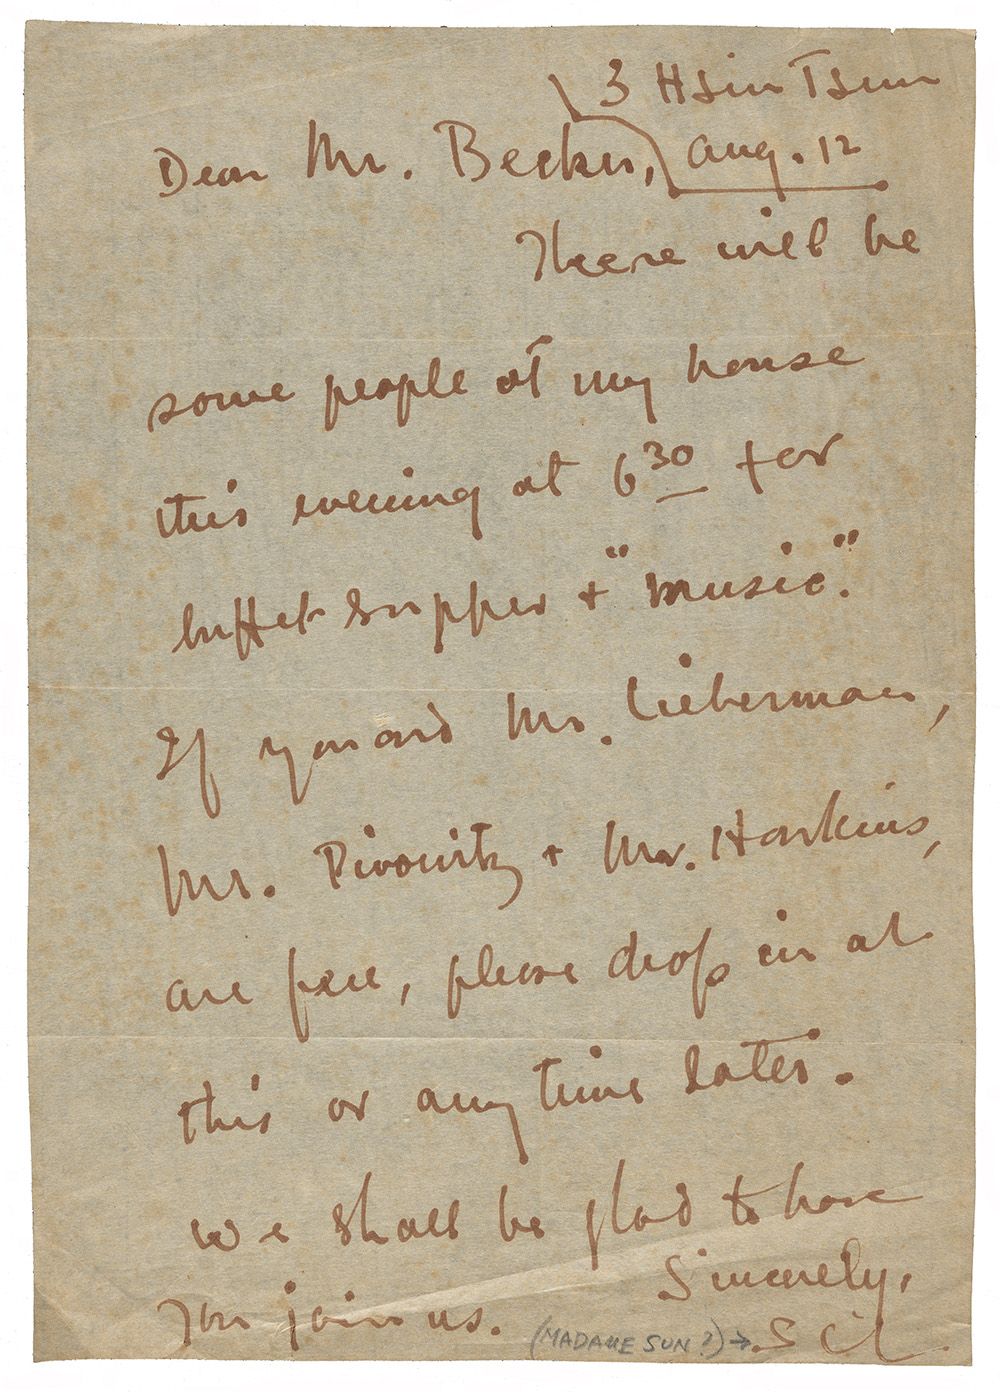 3 Hsin Tsun
Aug. 12
Dear Mr. Becker,
There will be
some people at my house
this evening at 6 30 for
buffet supper + "music."
If you and Mr. Lieberman,
Mr. Pivowitz + Mr. Harkins,
are free, please drop in at
this or any time later.
We shall be glad to have
you join us. Sincerely,
(MADAME SUN?) → SCL.